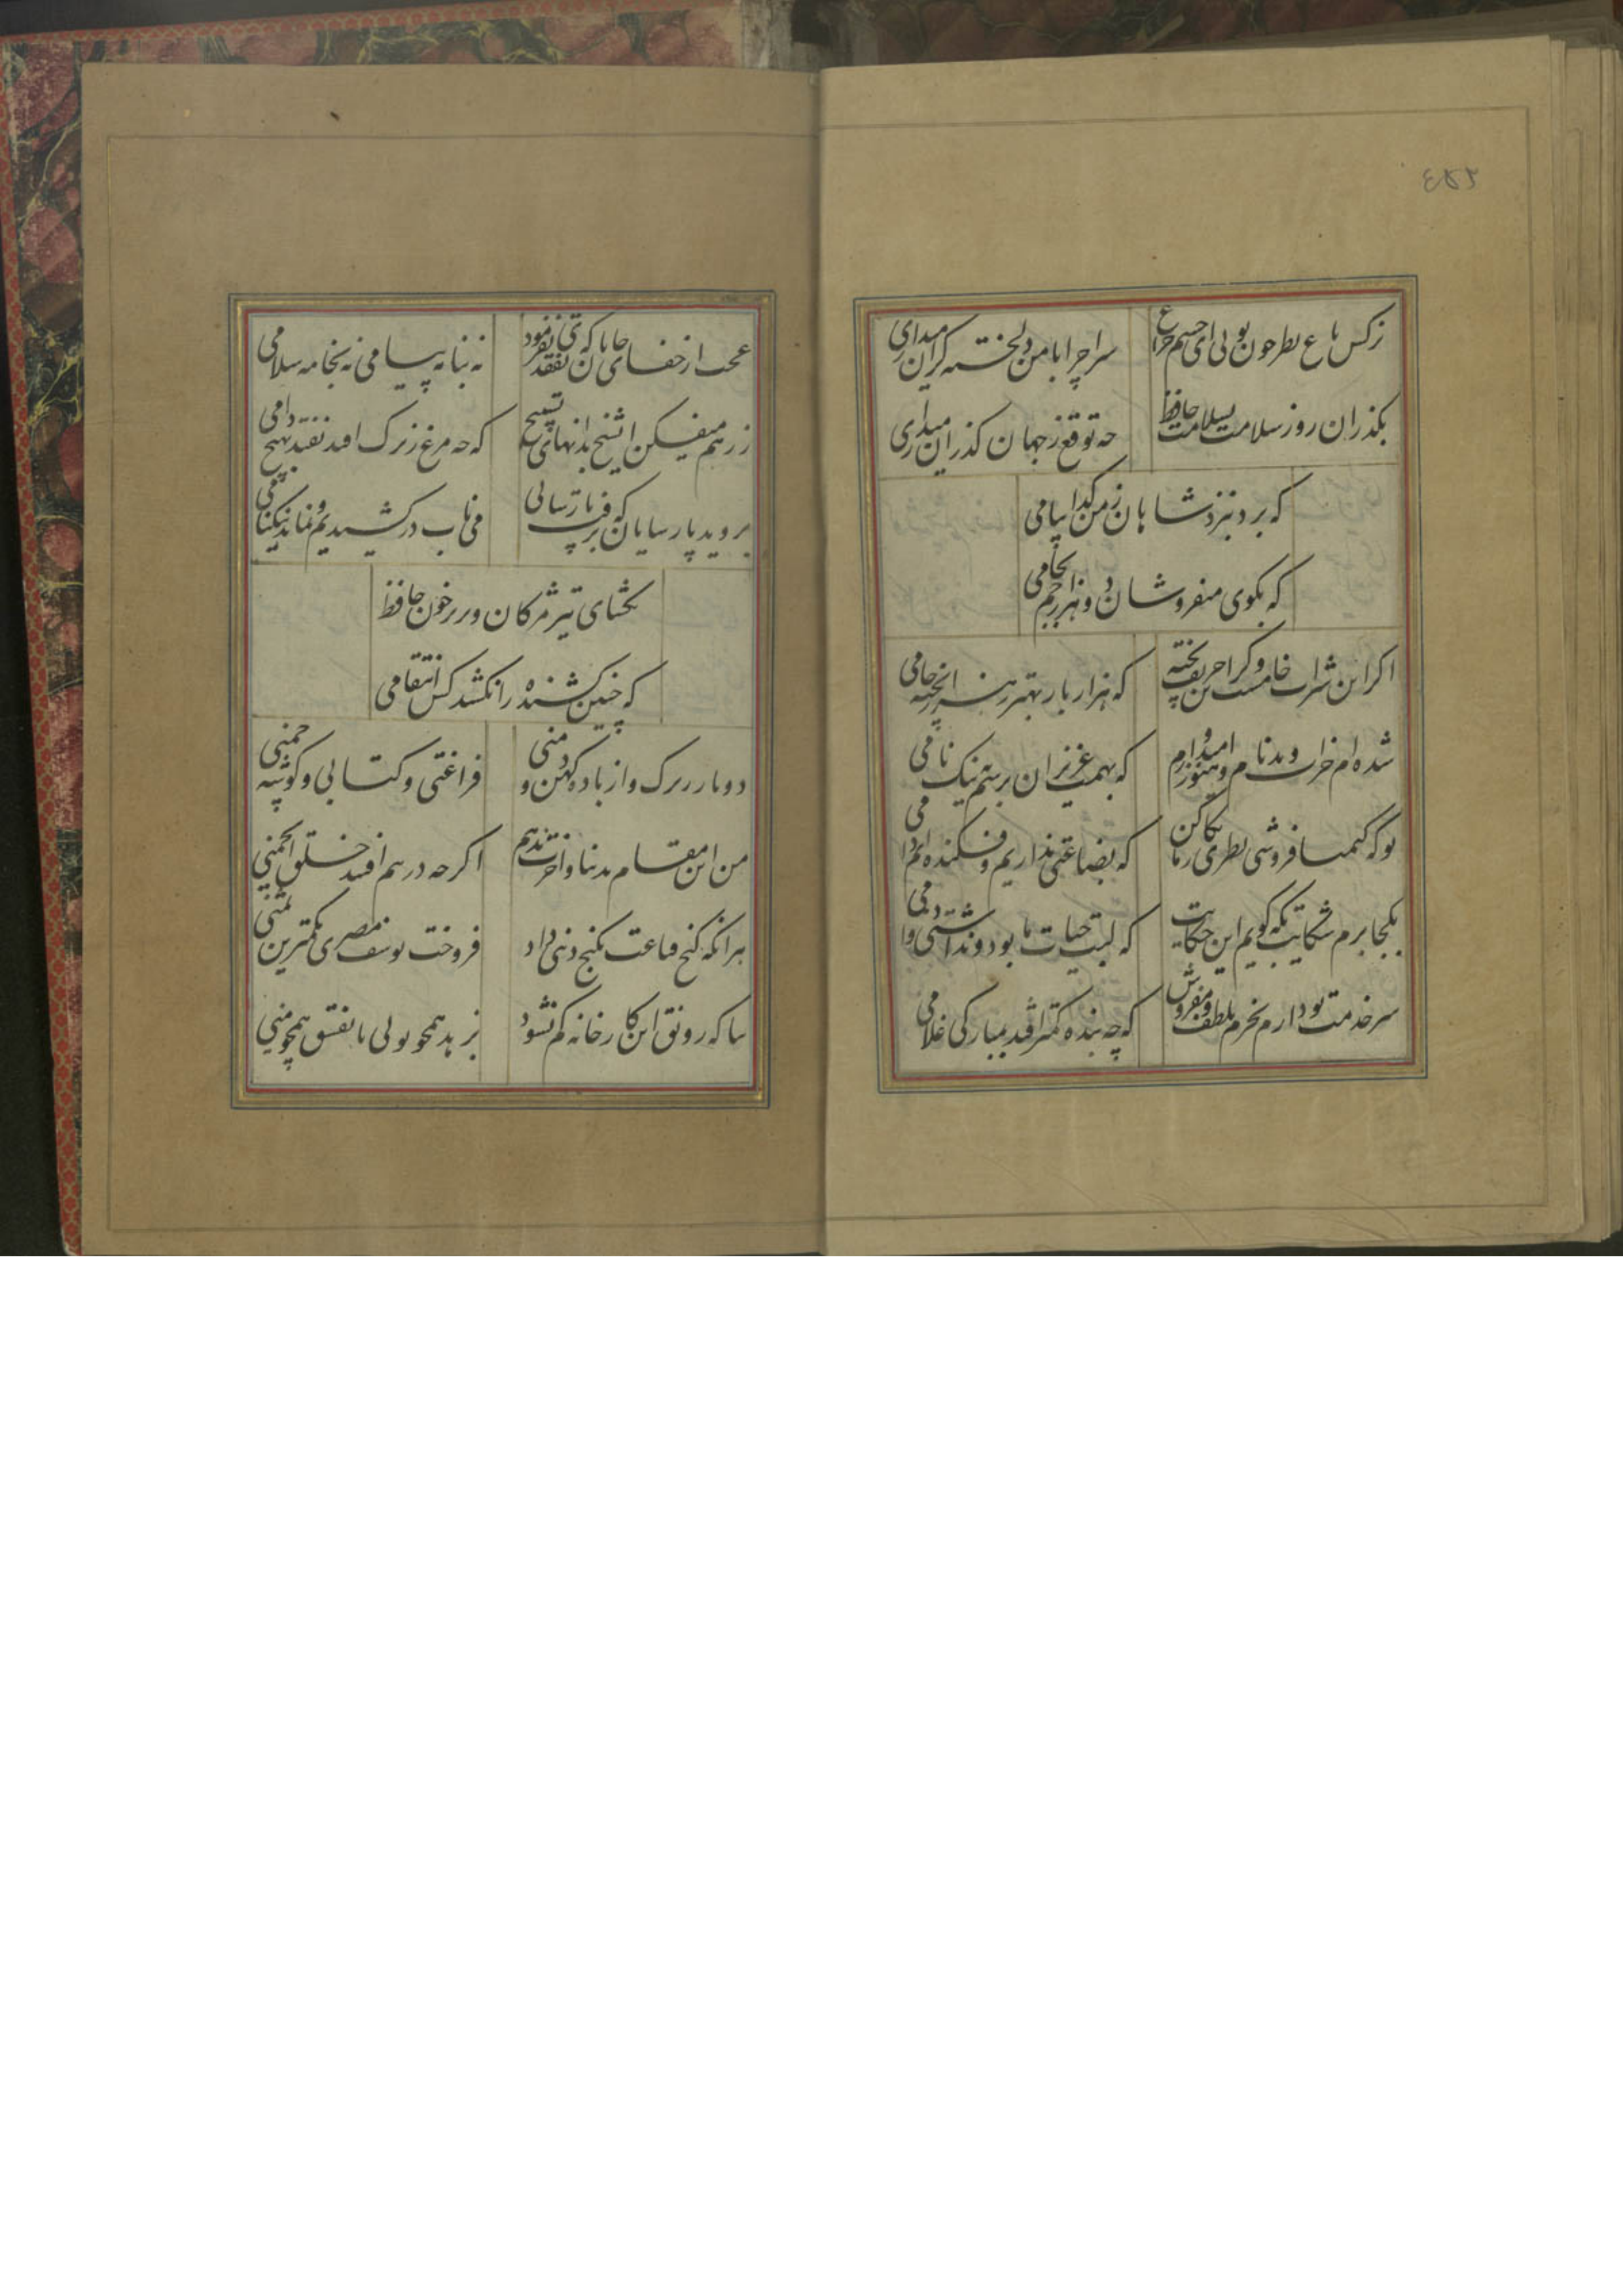 ۴۵۲
نرکس باغ نظر چون تویی ای چشم و چراغ
سر چرا با من دلخسته کران میداری
بگذران روز سلامت بسلامت حافظ
چه توقع ز جهان گذران میداری
که برد بنزد شاهان ز من کدا پیامی
که بکوی میفروشان دو هزار جم بجامی
اکر این شراب خامست وکر این حریف پخته
که هزار بار بهتر ز هزار پخته خامی
شده ام خراب و بدنام و هنوز امیدوارم
که بهمت عزیزان برسم به نیک نامی
تو که کیمیا فروشی نظری بما کن
که بضاعتی نداریم و فکنده ایم دامی
بکجا برم شکایت بکه کویم این حکایت
که لبت حیات ما بود و نداشتی دوامی
سر خدمت تو دارم بخرم بلطف و مفروش
که چه بنده کمتر افتد بمبارکی غلامی
عجب از جفای جانان که تفقدی نفرمود
نه بنامه پیامی نه بخامه سلامی
ز رهم میفکن ای شیخ بدانهای تسبیح
که چه مرغ زیرک افتد نفتد بهیچ دامی
بروید پارسایان که برفت پارسایی
می ناب درکشیدیم و نماند نیکنامی
بکشای تیر مژکان و بریز خون حافظ
که چنین کشنده را نکشد کس انتقامی
دو یار زیرک و از باده کهن دو منی
فراغتی و کتابی و کوشه چمنی
من این مقام بدنیا و آخرت ندهم
اکرچه در پیم افتند خلق انجمنی
هر آنکه کنج قناعت بکنج دنیی داد
فروخت یوسف مصری بکمترین ثمنی
بیا که رونق این کارخانه کم نشود
بزهد همچو تویی یا بفسق همچو منی